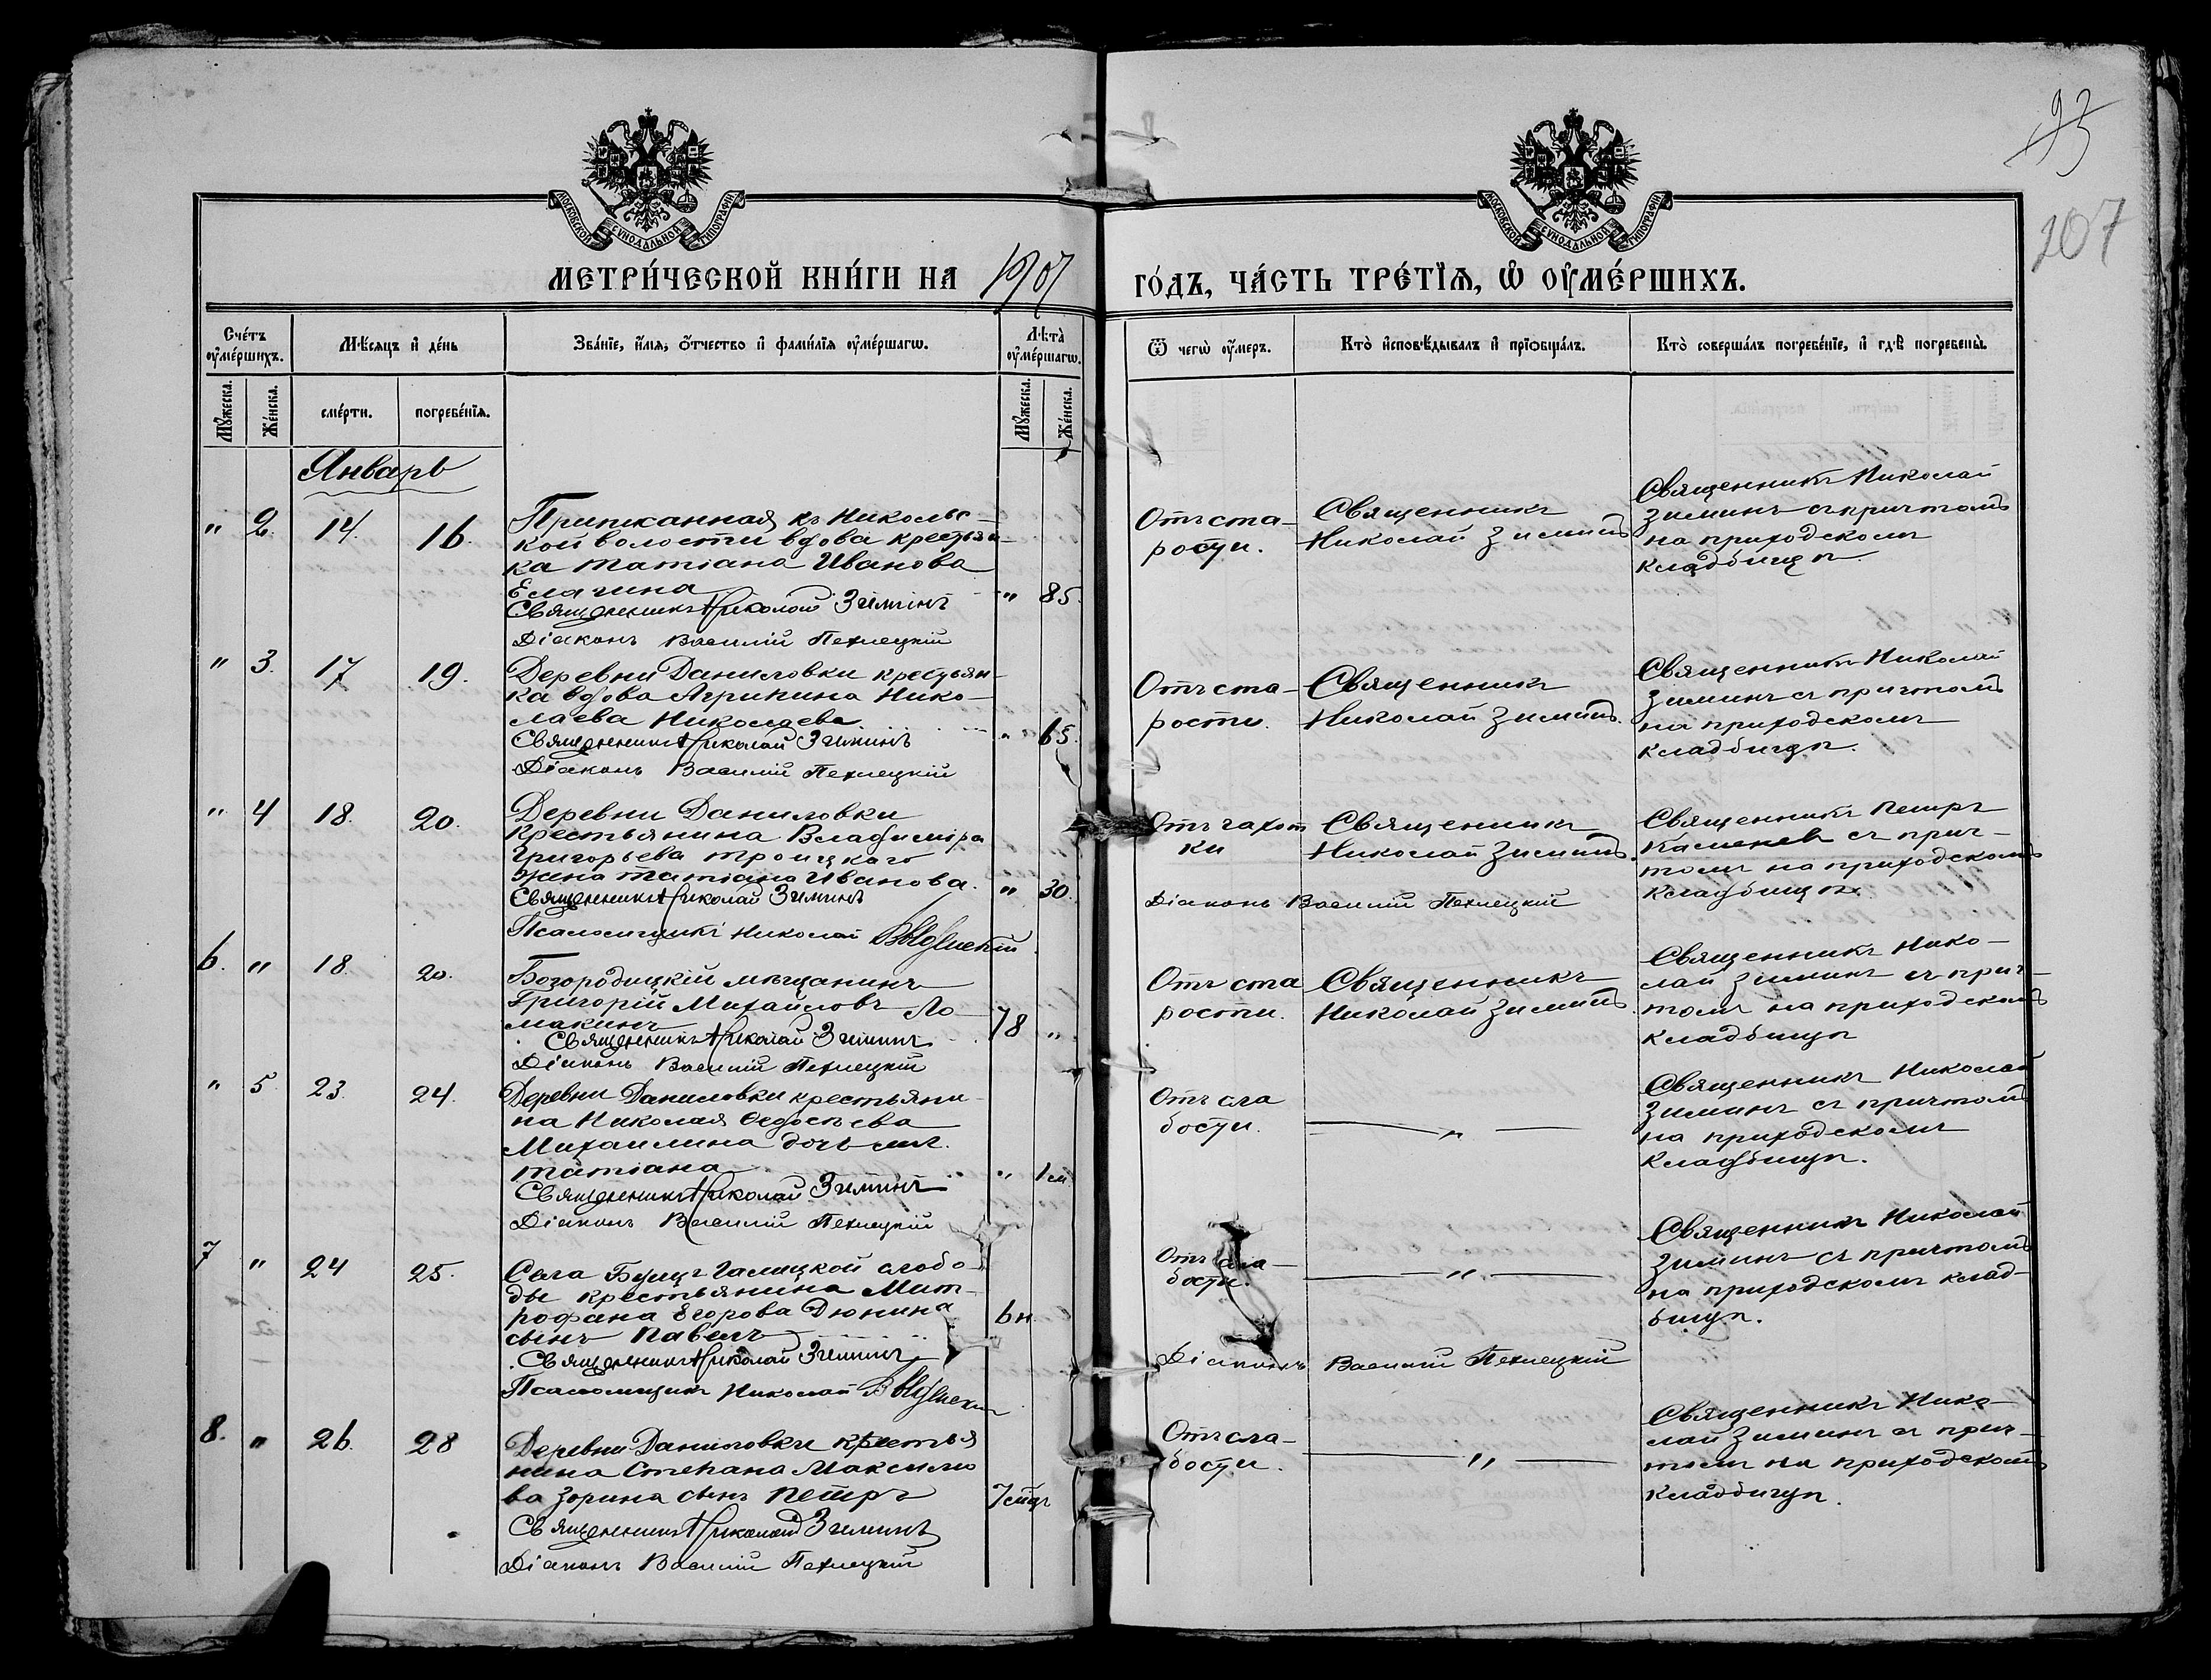 93
207
МОСКОВСКОЙ СѴНОДАЛЬНОЙ ТИПОГРАФІИ
МОСКОВСКОЙ СѴНОДАЛЬНОЙ ТИПОГРАФІИ
МЕТРИ́ЧЕСКОЙ КНИ́ГИ НА 1907 ГО́ДЪ, ЧА́СТЬ ТРЕ́ТІѦ, Ѡ҆ ОУ҆МЕ́РШИХЪ.
Сче́тъ оу҆ме́ршихъ.
Мѣ́сяцъ и҆ де́нь
Зва́нїе, и҆́мя, о҆́тчество и҆ фами́лїя оу҆ме́ршагѡ.
Лѣта̀ оу҆ме́ршагѡ.
Ѿ чегѡ̀ оу҆́меръ.
Кто̀ и҆сповѣ́дывалъ и҆ прїѡбща́лъ.
Кто̀ соверша́лъ погребе́нїе, и҆ гдѣ̀ погребены̀.
Мꙋ́жеска.
Же́нска.
сме́рти.
погребе́нїя.
Мꙋ́жеска.
Же́нска.
Январь
" 2. 14. 16.
Приписанная къ Николь-
ской волости вдова крестьян-
ка Татіана Иванова
Елагина " 85.
Священникъ Николай Зиминъ
Діаконъ Василій
Отъ ста-
рости.
Священникъ
Николай Зиминъ
Священникъ Николай
Зиминъ съ причтомъ
на приходскомъ
кладбищѣ.
" 3. 17 19.
Деревни Даниловки крестьян-
ка вдова Агрипина Нико-
лаева Николаева " 65.
Священникъ Николай Зиминъ
Діаконъ Василій
Отъ ста-
рости.
Священникъ
Николай Зиминъ.
Священникъ Николай
Зиминъ съ причтомъ
на приходскомъ
кладбищѣ.
" 4 18. 20.
Деревни Даниловки
крестьянина Владиміра
Григорьева Троицкаго
жена Татіана Иванова. " 30.
Священникъ Николай Зиминъ
Псаломщикъ Николай
Отъ чахот
ки
Священникъ
Николай Зиминъ.
Діаконъ Василій
Священникъ Петръ
Каменев съ прич-
томъ на приходскомъ
кладбищѣ.
6. " 18. 20.
Богородицкій мѣщанинъ
Григорій Михайловъ Ло-
макинъ 78 "
Священникъ Николай Зиминъ
Діаконъ Василій
Отъ ста
рости.
Священникъ
Николай Зиминъ.
Священникъ Нико-
лай Зиминъ съ прич-
томъ на приходскомъ
кладбищѣ
" 5. 23. 24.
Деревни Даниловки крестьяни-
на Николая Ѳедосѣева
Михаилина дочь мл.
Татіана " 1 м.
Священникъ Николай Зиминъ
Діаконъ Василій
Отъ сла
бости.
"
Священникъ Николай
Зиминъ съ причтомъ
на приходскомъ
кладбищѣ.
7 " 24 25.
Села Галицкой слобо-
ды крестьянина Мит-
рофана Егорова Дюкина
сынъ Павелъ 6 н.
Священникъ Николай Зиминъ
Псаломщикъ Николай
Отъ сла-
бости.
"
Діаконъ Василій
Священникъ Николай
Зиминъ съ причтомъ
на приходскомъ клад-
бищѣ.
8. " 26. 28
Деревни Даниловки крестья
нина Стефана Максимо
ва Зорина сынъ Петръ
Священникъ Николай Зиминъ
Діаконъ Василій
Отъ сла-
бости.
"
Священникъ Нико-
лай Зиминъ съ прич-
томъ на приходскомъ
кладбищѣ.